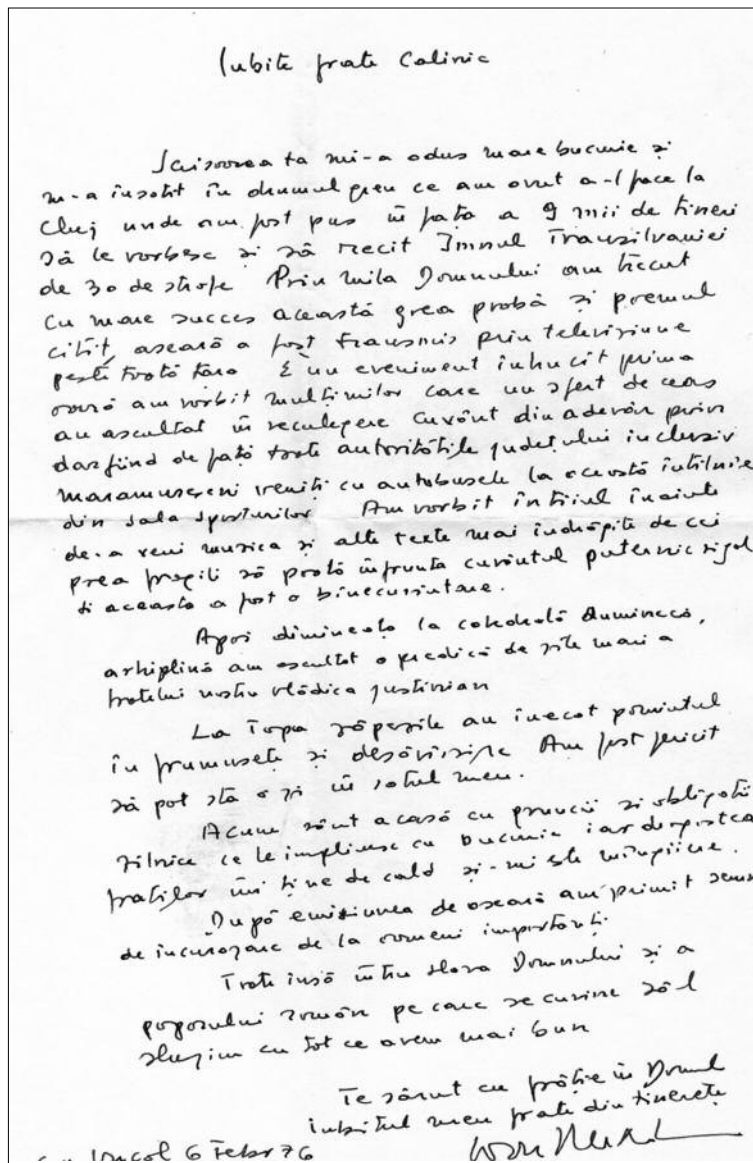 Iubite frate Calinic
Scisoarea ta mi-a adus mare bucurie și
m-a însoțit în drumul greu ce am avut a-l face la
Cluj unde am fost pus în fața a 9 mii de tineri
să le vorbesc și să recit Imnul Transilvaniei
de 30 de strofe Prin mila Domnului am trecut
cu mare succes această grea probă și poemul
citit, aseară a fost transmis prin televiziune
peste toată țara E un eveniment întrucît prima
oară am vorbit mulțimilor care un sfert de ceas
au ascultat în reculegere cuvânt din adevăr prin
dar fiind de față toate autoritățile județului inclusiv
maramureșeni veniți cu autobusele la această întîlnire
din sala sporturilor Am vorbit întîiul înainte
de-a veni muzica și alte texte mai îndrăgite de cei
prea fragili să poată înfrunta cuvîntul puternic
și aceasta a fost o binecuvîntare.
Apoi dimineața la catedrală Duminecă,
arhiplină am ascultat o predică de zile mari a
fratelui nostru vlădica Justinian
La Țopa zăpezile au înecat pămîntul
în frumusețe și desăvîrșire Am fost fericit
să pot sta o zi în satul meu.
Acum sânt acasă cu pruncii și obligații
zilnice ce le împlinesc cu bucurie iar dragostea
fraților îmi ține de cald și-mi este mîngîiere.
După emisiunea de aseară am primit semne
de încurajare de la oameni importanți.
Toate însă întru slava Domnului și a
poporului român pe care se cuvine să-l
slujim cu tot ce avem mai bun
Te sărut cu frăție în Domnul
iubitul meu frate din tinerețe
6 Febr 76